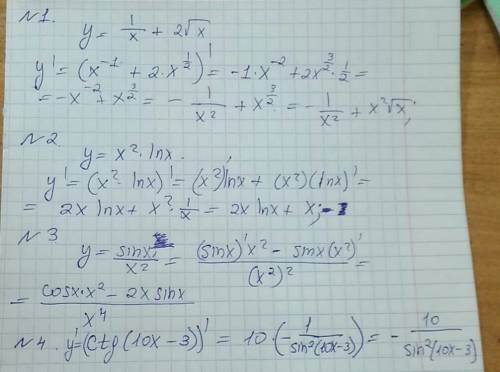 №1.
y = 1/x + 2√x
y' = (x^-1 + 2·x^(1/2))' = -1·x^-2 + 2x^(3/2)·1/2 =
= -x^-2 + x^(3/2) = - 1/x² + x^(3/2) = - 1/x² + x²√x;
№2
y = x²·lnx.
y' = (x²·lnx)' = (x²)'lnx + (x²)(lnx)' =
= 2x lnx + x²·1/x = 2x lnx + x;
№3
y = sinx/x² = ((sinx)'x² - sinx(x²)')/(x²)² =
= (cosx·x² - 2x sinx)/x⁴
№4. y' = (ctg(10x-3))' = 10·(-1/sin²(10x-3)) = - 10/sin²(10x-3)